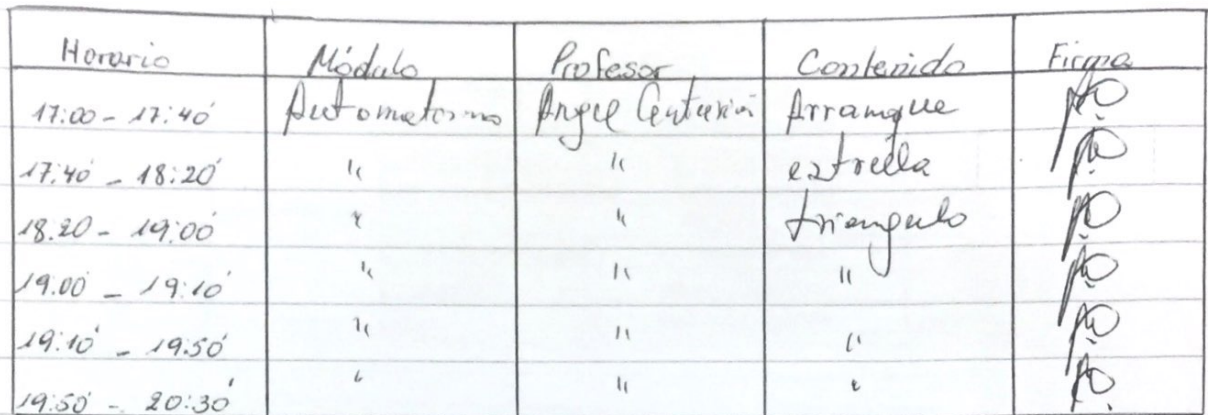 Horario Módulo Profesor Contenido Firma
17:00 - 17:40 Automatismo Angel Centurión Arranque
17:40 - 18:20 " " estrella
18:20 - 19:00 " " triangulo
19:00 - 19:10 " " "
19:10 - 19:50 " " "
19:50 - 20:30 " " "